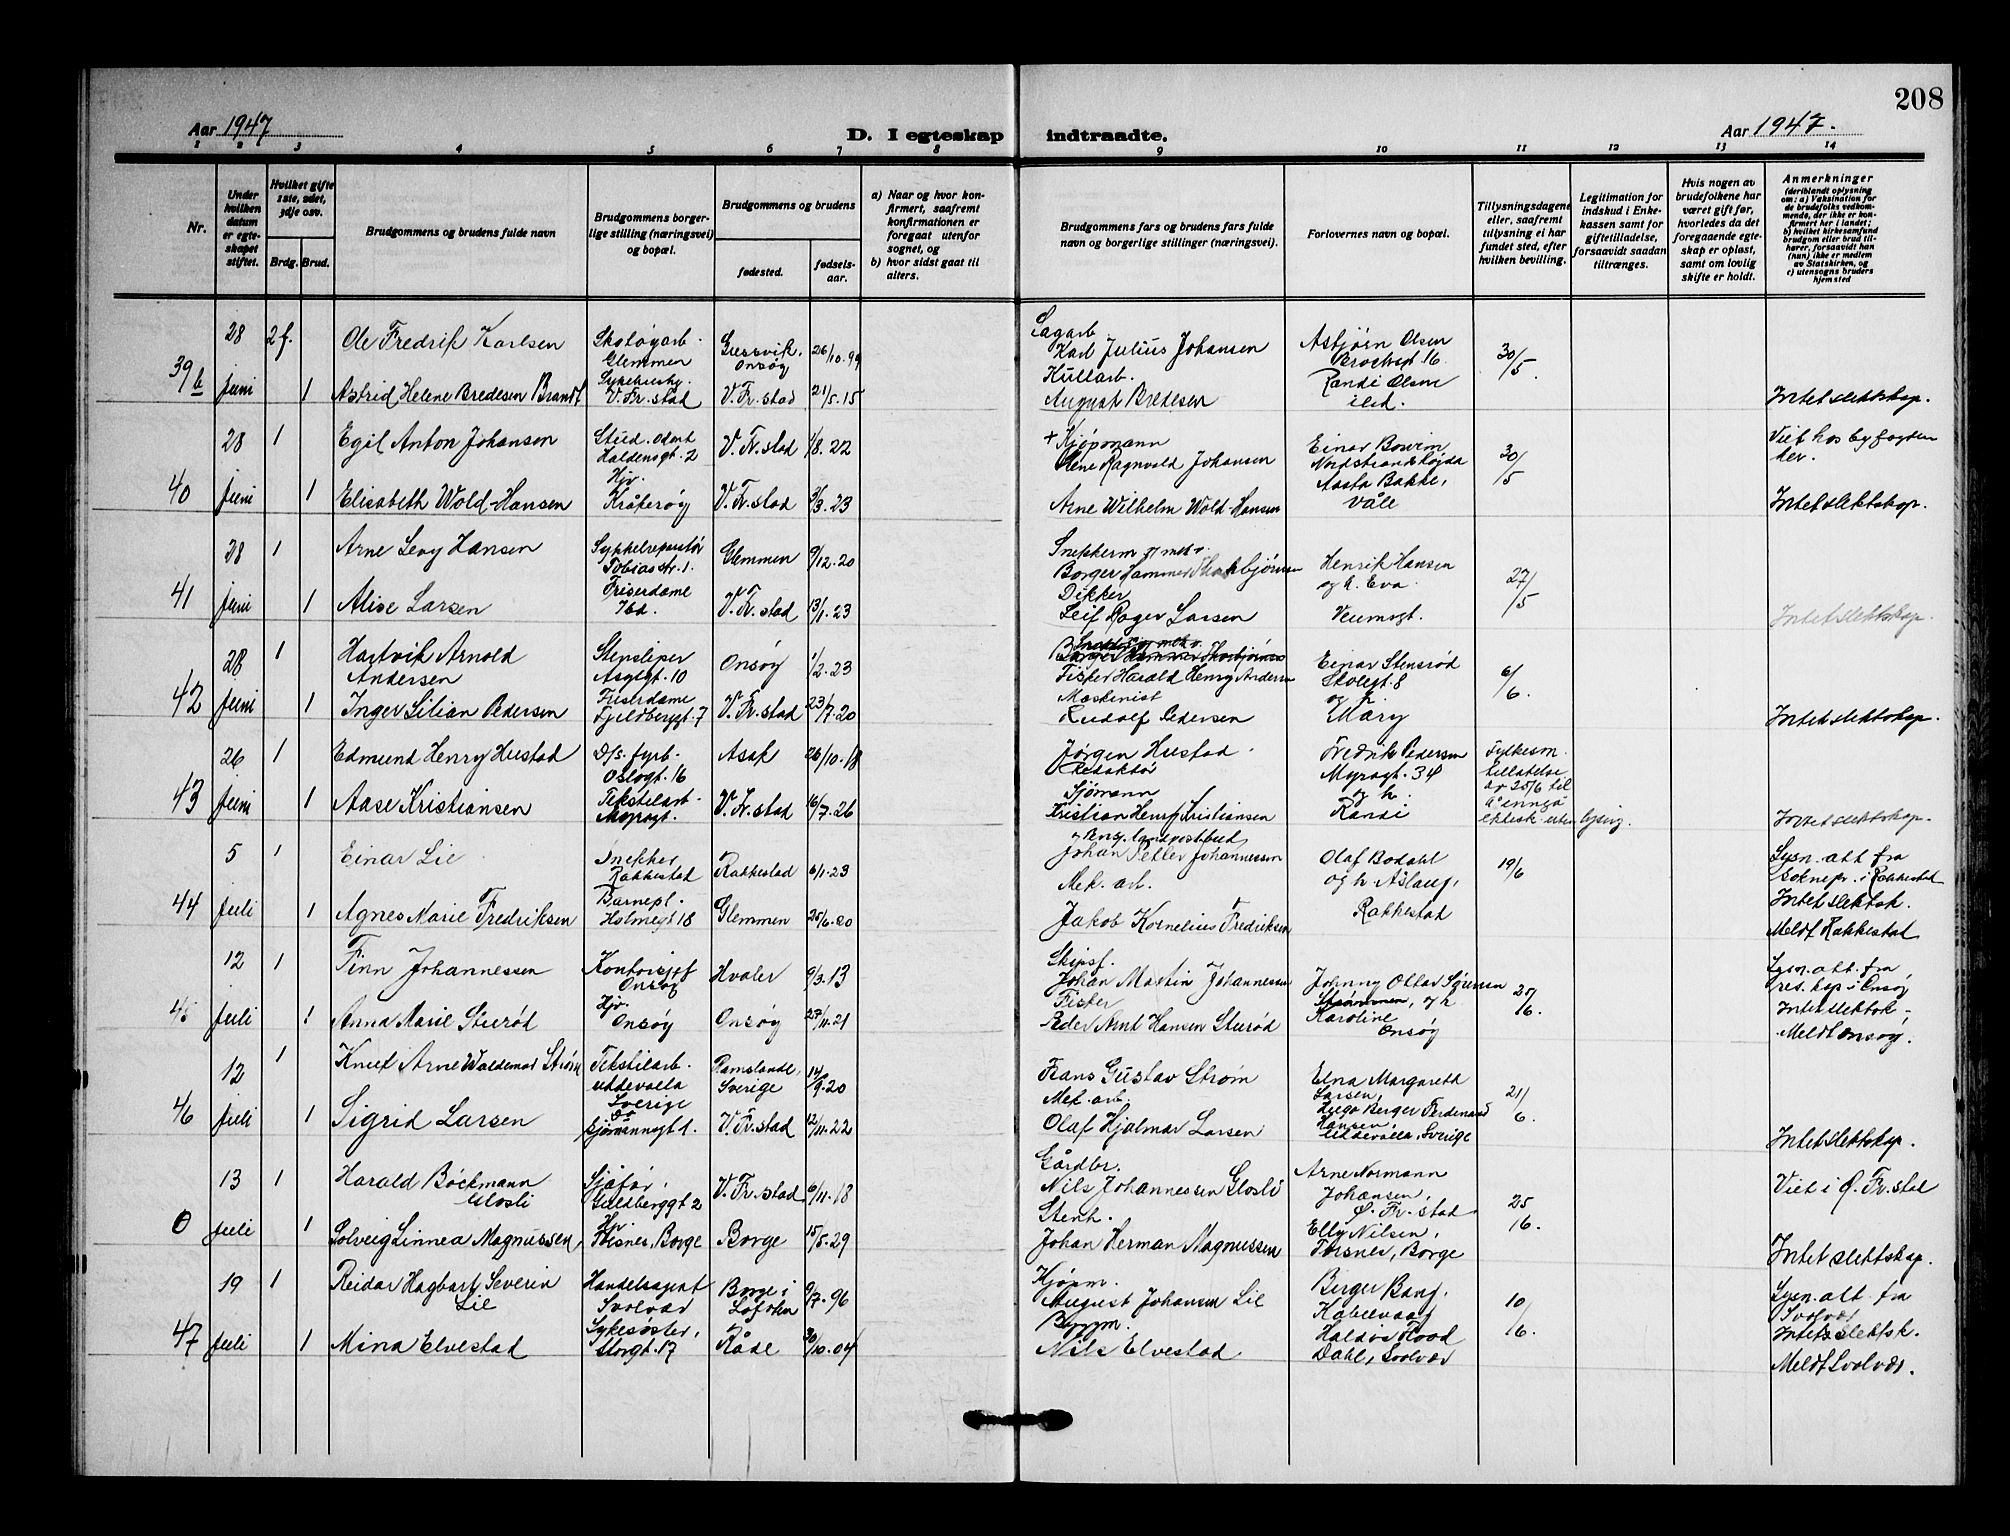 208
Aar 1947
D. I egteskap indtraadte.
Aar 1947.
1 2 3 4 5 6 7 8 9 10 11 12 13 14
Nr.
Under hvilken datum er egteskapet stiftet.
Hvilket gifte 1ste, 2det, 3dje osv.
Brdg. Brud.
Brudgommens og brudens fulde navn
Brudgommens borgerlige stilling (næringsvei) og bopæl.
Brudgommens og brudens
fødested.
fødselsaar.
a) Naar og hvor konfirmert, saafremt konfirmationen er foregaat utenfor sognet, og
b) hvor sidst gaat til alters.
Brudgommens fars og brudens fars fulde navn og borgerlige stillinger (næringsvei).
Forlovernes navn og bopæl.
Tillysningsdagene eller, saafremt tillysning ei har fundet sted, efter hvilken bevilling.
Legitimation for indskud i Enkekassen samt for giftetilladelse, forsaavidt saadan tiltrænges.
Hvis nogen av brudefolkene har været gift før, hvorledes da det foregaaende egteskap er opløst, samt om lovlig skifte er holdt.
Anmerkninger
(deriblandt oplysning om: a) Vaksination for de brudefolks vedkommende, der ikke er konfirmert her i landet; b) hvilket kirkesamfund brudgom eller brud tilhører, forsaavidt han (hun) ikke er medlem av Statskirken, og c) utensogns bruders hjemsted
39b 28 Juni
2 f. Ole Fredrik Karlsen Skotøyarb. Glemmen Gressvik, Onsøy 26/10.99
Sagarb. Karl Julius Johansen
Asbjørn Olsen 16. 30/5
1 Astrid Helene Bredesen Brandt V. Fr.stad V. Fr.stad 21/5.15
Kullarb. August Bredesen
Randi Olsen ibd.
Intet slektskap.
40 28 Juni
1 Egil Anton Johansen Stud. Haldensgt. 2 V. Fr.stad 1/8.22
+ Kjøpmann Ragnvald Johansen
Einar Nordstrandshøgda 30/5
Viet hos byfogden her.
1 Elisabeth Wold-Hansen Hjv. Kråkerøy V. Fr.stad 3/3.23
Arne Wilhelm Wold-Hansen
Aasta Bakke, Våle
Intet slektskap.
41 28 Juni
1 Arne Levy Hansen Sykkelreparatør Tobiasstr. 1. Glemmen 9/12.20
Snekkerm og mek. Borger Hammer
Henrik Hansen og h. Eva. 27/5
1 Alise Larsen Friserdame Ibd. V. Fr.stad 13/1.23
Dikker Leif Roger Larsen
Veumsgt.
Intet slektskap.
42 28 Juni
1 Hartvik Arnold Andersen Stensliper Asylgt. 10 Onsøy 1/2.23
Fisker Harald Henry Andersen
Einar Stensrød Skolegt. 8 6/6.
1 Inger Lilian Pedersen Friserdame Fjeldberggt. 7 V. Fr.stad 23/7.20
Maskinist Rudolf Pedersen
og h. Mary
Intet slektskap.
43 26 Juni
1 Edmund Henry Hustad D/s. fyrb. Oslogt. 16 Asak 26/10.18
Jørgen Hustad Redaktør
Fredrik Pedersen Myragt. 34
Fylkesm. tillatelse av 25/6 til å inngå ektesk. uten lysing.
1 Aase Kristiansen Tekstilarb. Myragt. V. Fr.stad 16/7.26
Sjømann Kristian Henry Kristiansen
og h. Randi
Intet slektskap.
44 5 Juli
1 Einar Lie Snekker Rakkestad Rakkestad 6/11.23
landpostbud Johan Petter Johannessen
Olaf Bodahl og h. Aslaug, Rakkestad 19/6
Lysn. att. fra soknepr. i Rakkestad
1 Agnes Marie Fredriksen Barnepl. Holmegt 18 Glemmen 25/6.20
Mek. arb. Jakob Kornelius Fredriksen
Intet slektsk.
Meldt Rakkestad
45 12 Juli
1 Finn Johannessen Kontorsjef Onsøy Hvaler 9/3.13
Skipsf. Johan Martin Johannessen
Johnny Ottar og h Karoline Onsøy 25/6.
Lysn. att. fra res. kap. i Onsøy
1 Anna Marie Sturød Hjv. Onsøy Onsøy 27/11.21
Fisker Peder Arnt Hansen Sturød
Intet slektsk.
Meldt Onsøy.
46 12 Juli
1 Knut Arne Waldemar Strøm Tekstilarb. Uddevalla Sverige Ramslanda, Sverige 14/9.20
Frans Gustav Strøm
Elna Margareth Larsen, 21/6.
1 Sigrid Larsen Sjømannsgt 1. V. Fr.stad 12/11.22
Mek. arb. Olaf Hjalmar Larsen
Hugo Berger Ferdinand Hansen, Uddevalla, Sverige
Intet slektskap.
0 13 Juli
1 Harald Bøckmann Glosli Sjåfør, Guldberggt 2 V. Fr.stad 6/11.18
Gårdbr. Nils Johannessen Glosli
Arne Normann Johansen, Ø. Fr.stad 25/6.
Viet i Ø. Fr.stad
1 Solveig Linnea Magnussen Hv. Torsnes, Borge Borge 15/5.29
Stenh. Johan Herman Magnussen
Elly Nilsen, Torsnes, Borge
Intet slektskap.
47 19 Juli
1 Reidar Hagbart Severin Lie Handelsagent Svolvær Borge i Lofoten 9/7.96
Kjøpm. August Johansen Lie
Birger Bang, Kabelvaag 10/6.
Lysn. att. fra Svolvær
1 Mina Elvestad Sykesøster, Storgt. 17 Råde 30/10.04
Byggm. Nils Elvestad
Haldis Flood Dahl, Svolvær
Intet slektsk.
Meldt Svolvær.